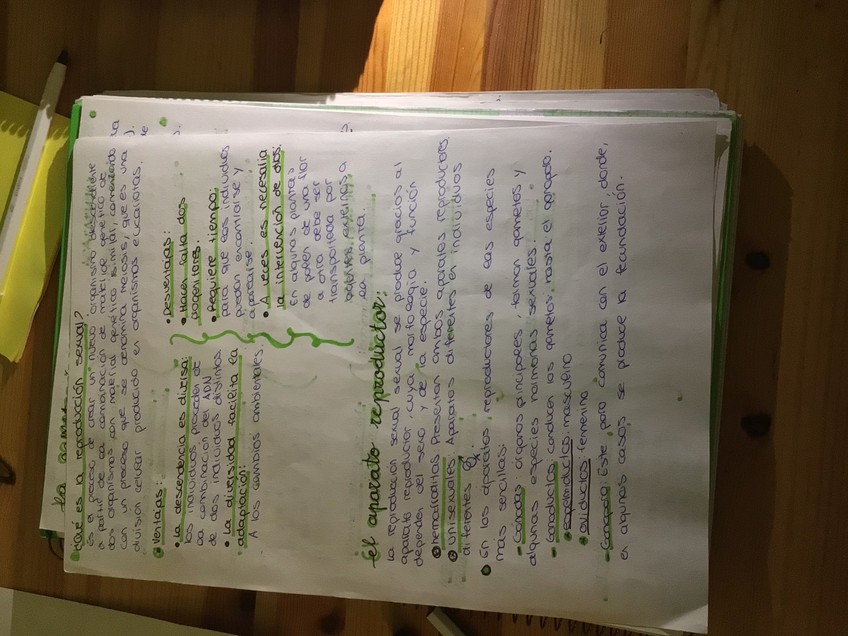 ¿Qué es la reproducción sexual?
es el proceso de crear un nuevo organismo descendiente
a partir de la combinación de material genético de
dos organismos con material genético similar, comenzando
con un proceso que se denomina meiosis, que es una
división celular producido en organismos eucaliotas.
• Ventajas:
• La descendencia es diversa:
los individuos proceden de
la combinación del ADN
de dos individuos distintos
• La diversidad facilita la
adaptación:
A los cambios ambientales
• Desventajas:
• Hacen falta dos
progenitores.
• Requiere tiempo:
para que los individuos
puedan encontrarse y
aparearse.
• A veces es necesaria
la intervención de otros.
En algunas plantas
de polen de una flor
a otra debe ser
transportada por
la planta.
El aparato reproductor:
La reproducción sexual se produce gracias al
aparato reproductor, cuya morfología y función
depende del sexo y de la especie.
Hemafroditas Presentan ambos aparatos reproductores.
Unisexuales Aparatos diferentes en individuos
diferentes
• En los aparatos reproductores de las especies
mas sencillas:
- Gónadas organos principares, forman gametos y
algunas especies hormonas sexuales.
- Gonoductos conducen los gametos hasta el aparato.
• espermiductos masculino
• oviductos: femenino
- Gonoporo: Este poro comunica con el exterior, donde,
en algunos casos, se produce la fecundación.